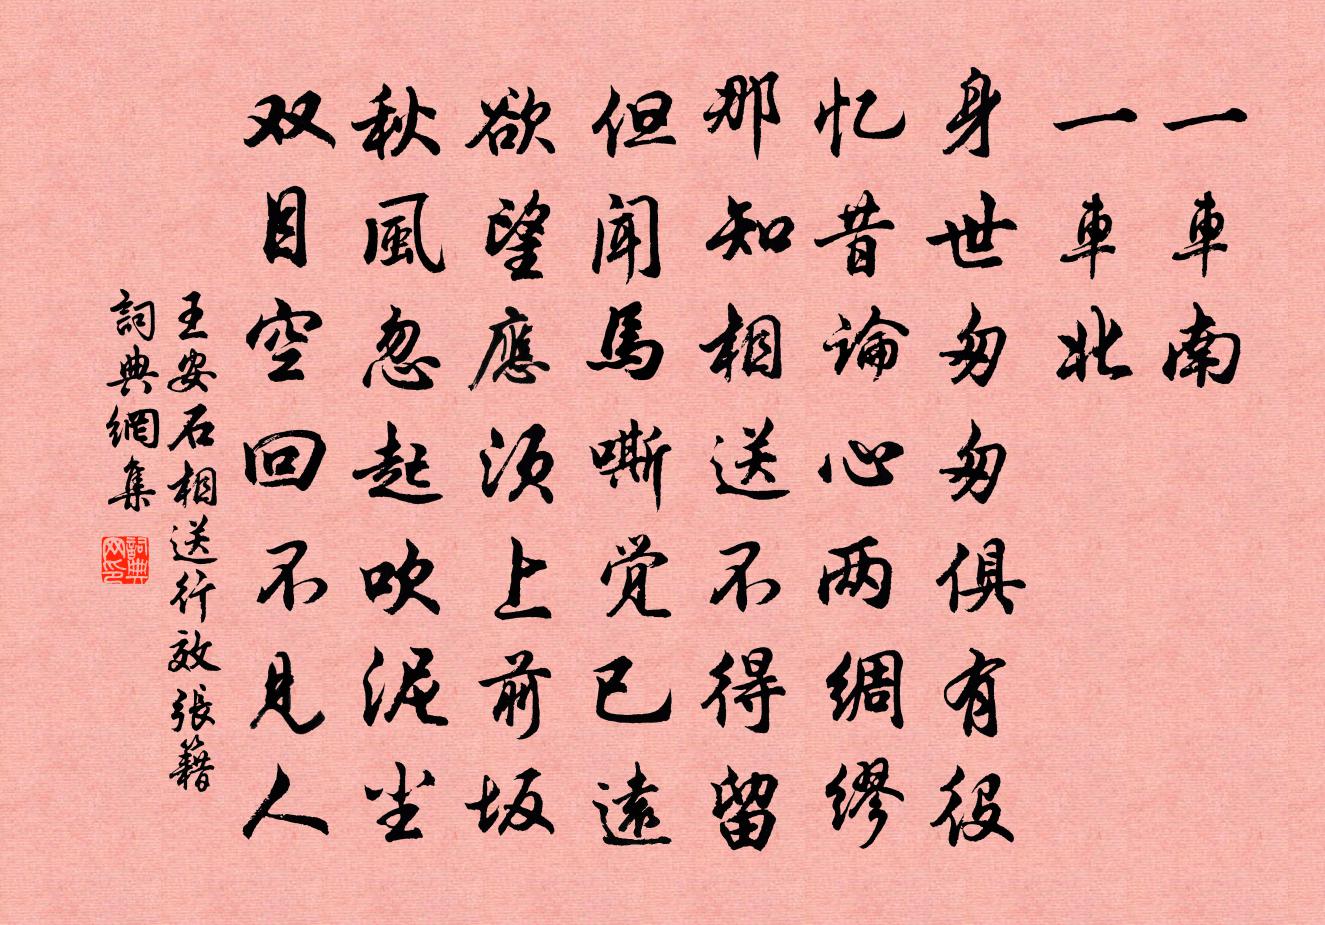 一車南
一車北
身世匆匆俱有役
忆昔論心两綢繆
那知相送不得留
但闻馬嘶觉已遠
欲望應须上前坂
秋風忽起吹泥尘
双目空回不見人
王安石相送行效張籍
詞典網集
詞典网印